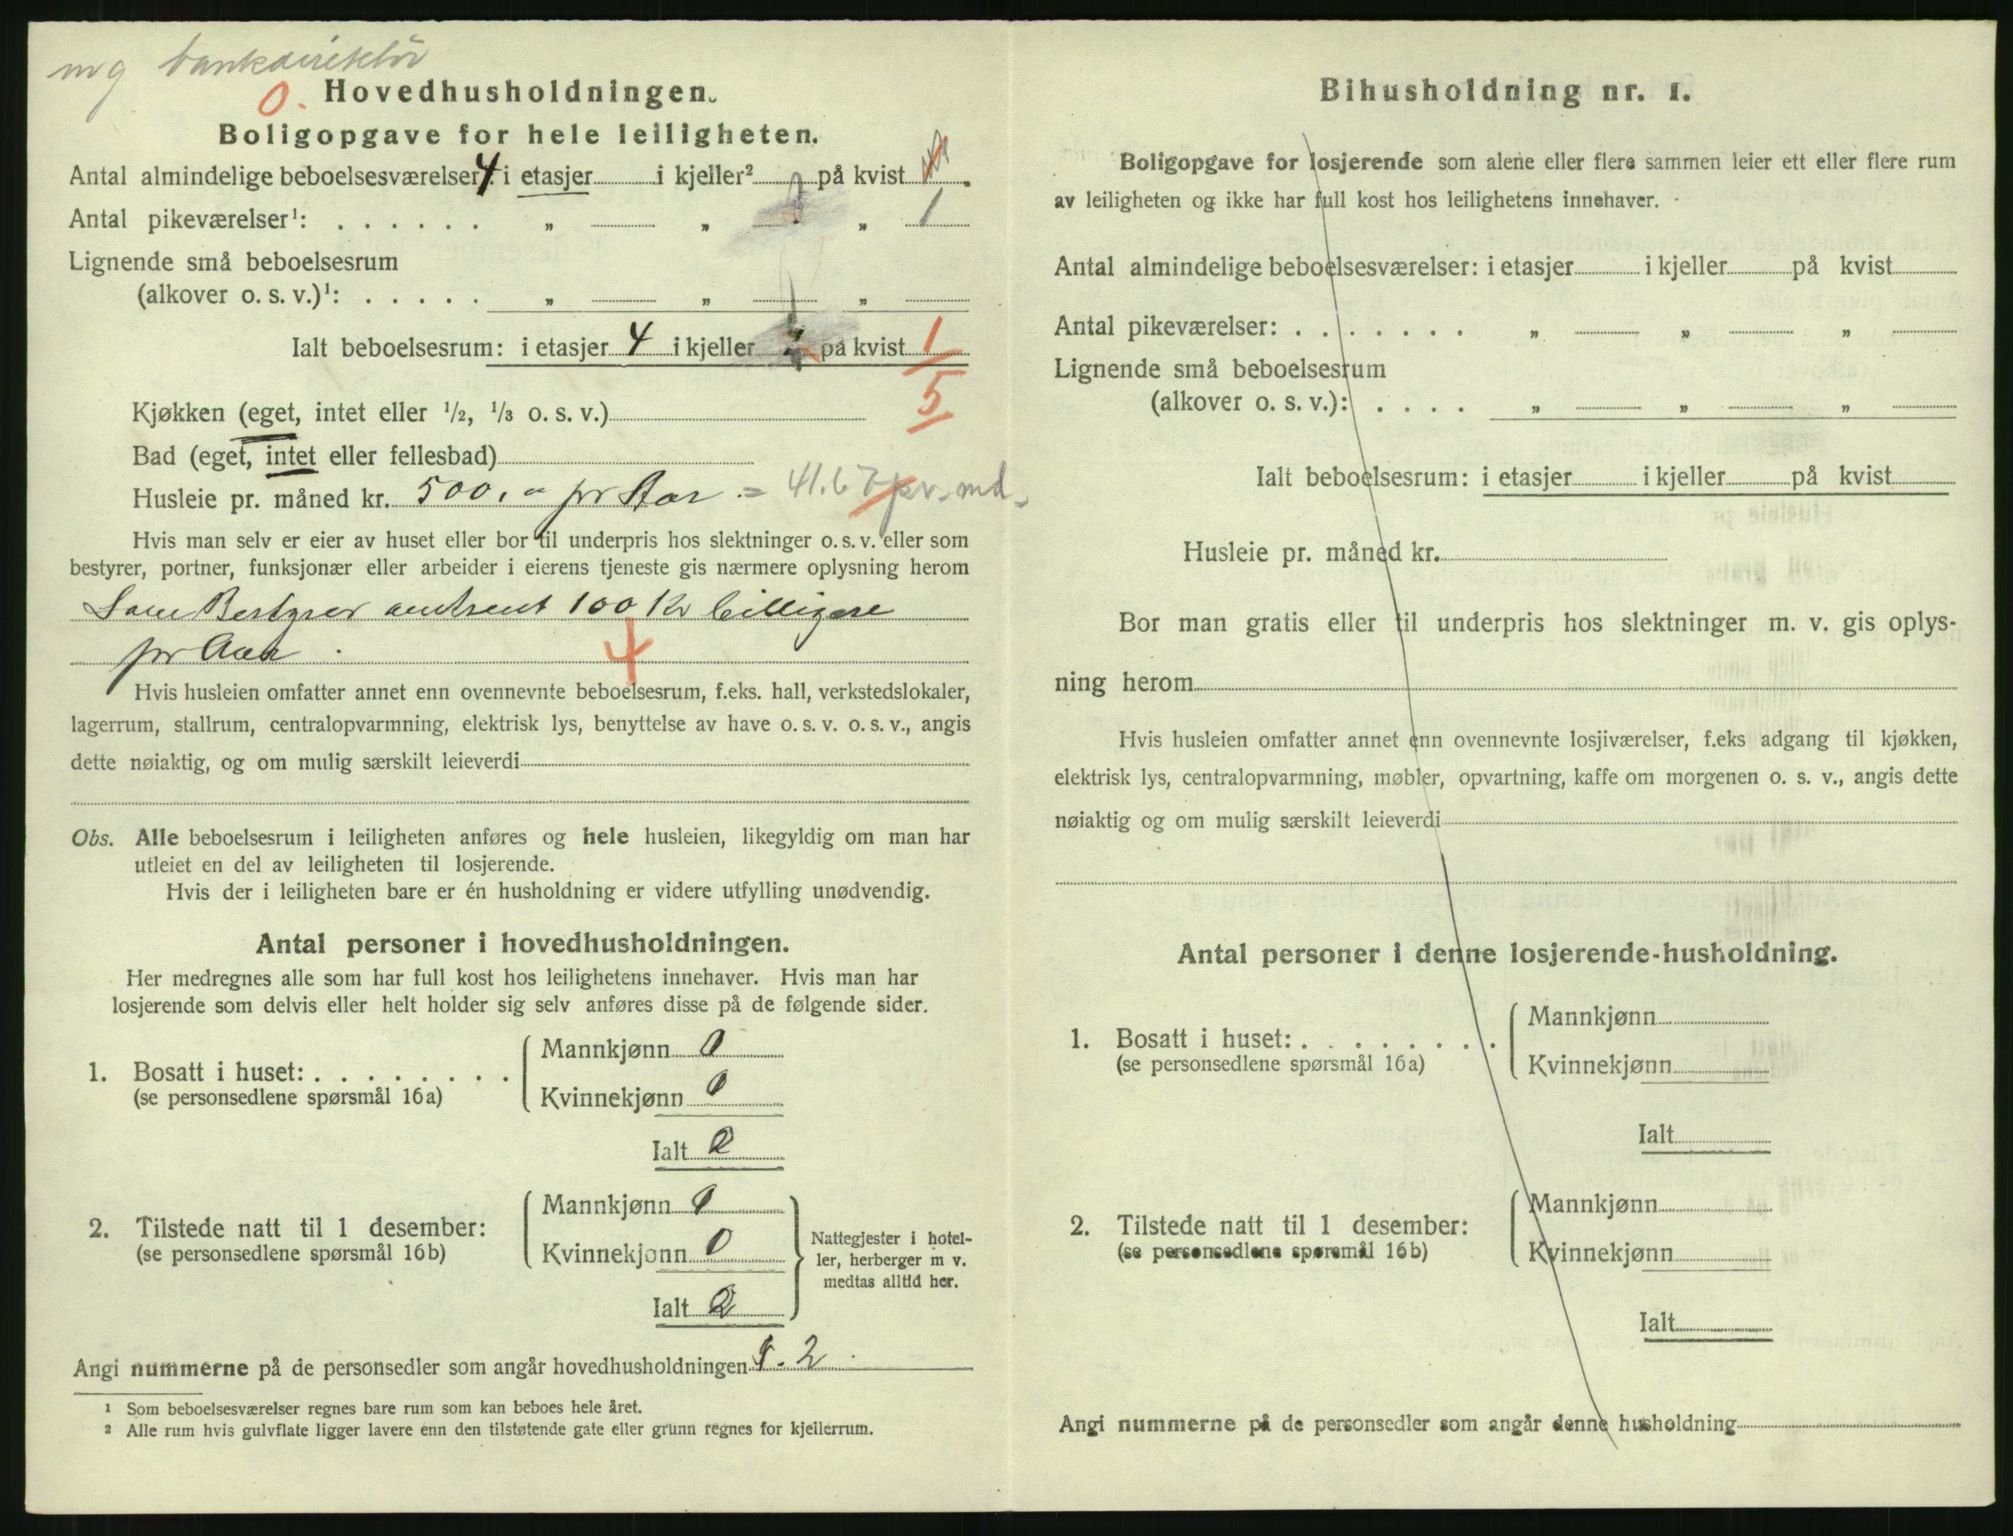 mg bankdirektör
0. Hovedhusholdningen.
Boligopgave for hele leiligheten.
Antal almindelige beboelsesværelser 4 i etasjer i kjeller² på kvist
Antal pikeværelser¹: . . . . . . „ „ „ 1
Lignende små beboelsesrum
(alkover o. s. v.)¹: . . . . . „ „ „
Ialt beboelsesrum: i etasjer 4 i kjeller på kvist 1
5
Kjøkken (eget, intet eller 1/2, 1/3 o. s. v.)
Bad (eget, intet eller fellesbad)
Husleie pr. måned kr. 500,- pr Aar = 41.67 pr. md.
Hvis man selv er eier av huset eller bor til underpris hos slektninger o. s. v. eller som
bestyrer, portner, funksjonær eller arbeider i eierens tjeneste gis nærmere oplysning herom
Som Bestyrer omtrent 100 Kr billigere
pr Aar .
4
Hvis husleien omfatter annet enn ovennevnte beboelsesrum, f.eks. hall, verkstedslokaler,
lagerrum, stallrum, centralopvarmning, elektrisk lys, benyttelse av have o. s. v. o. s. v., angis
dette nøiaktig, og om mulig særskilt leieverdi
Obs. Alle beboelsesrum i leiligheten anføres og hele husleien, likegyldig om man har
utleiet en del av leiligheten til losjerende.
Hvis der i leiligheten bare er én husholdning er videre utfylling unødvendig.
Antal personer i hovedhusholdningen.
Her medregnes alle som har full kost hos leilighetens innehaver. Hvis man har
losjerende som delvis eller helt holder sig selv anføres disse på de følgende sider.
1. Bosatt i huset: . . . . . . . .
(se personsedlene spørsmål 16a)
Mannkjønn 1
Kvinnekjønn 1
Ialt 2
2. Tilstede natt til 1 desember:
(se personsedlene spørsmål 16b)
Mannkjønn 1
Kvinnekjonn 1
Ialt 2
Nattegjester i hotel-
ler, herberger m v.
medtas alltid her.
Angi nummerne på de personsedler som angår hovedhusholdningen 1. 2
¹ Som beboelsesværelser regnes bare rum som kan beboes hele året.
² Alle rum hvis gulvflate ligger lavere enn den tilstøtende gate eller grunn regnes for kjellerrum.
Bihusholdning nr. 1.
Boligopgave for losjerende som alene eller flere sammen leier ett eller flere rum
av leiligheten og ikke har full kost hos leilighetens innehaver.
Antal almindelige beboelsesværelser: i etasjer i kjeller på kvist
Antal pikeværelser: . . . . . . . „ „ „
Lignende små beboelsesrum
(alkover o. s. v.): . . . . „ „ „
Ialt beboelsesrum: i etasjer i kjeller på kvist
Husleie pr. måned kr.
Bor man gratis eller til underpris hos slektninger m. v. gis oplys-
ning herom
Hvis husleien omfatter annet enn ovennevnte losjiværelser, f.eks adgang til kjøkken,
elektrisk lys, centralopvarmning, møbler, opvartning, kaffe om morgenen o. s. v., angis dette
nøiaktig og om mulig særskilt leieverdi
Antal personer i denne losjerende-husholdning.
1. Bosatt i huset: . . . . . . . .
(se personsedlene spørsmål 16a)
Mannkjønn
Kvinnekjønn
Ialt
2. Tilstede natt til 1 desember:
(se personsedlene spørsmål 16b)
Mannkjønn
Kvinnekjønn
Ialt
Angi nummerne på de personsedler som angår denne husholdning